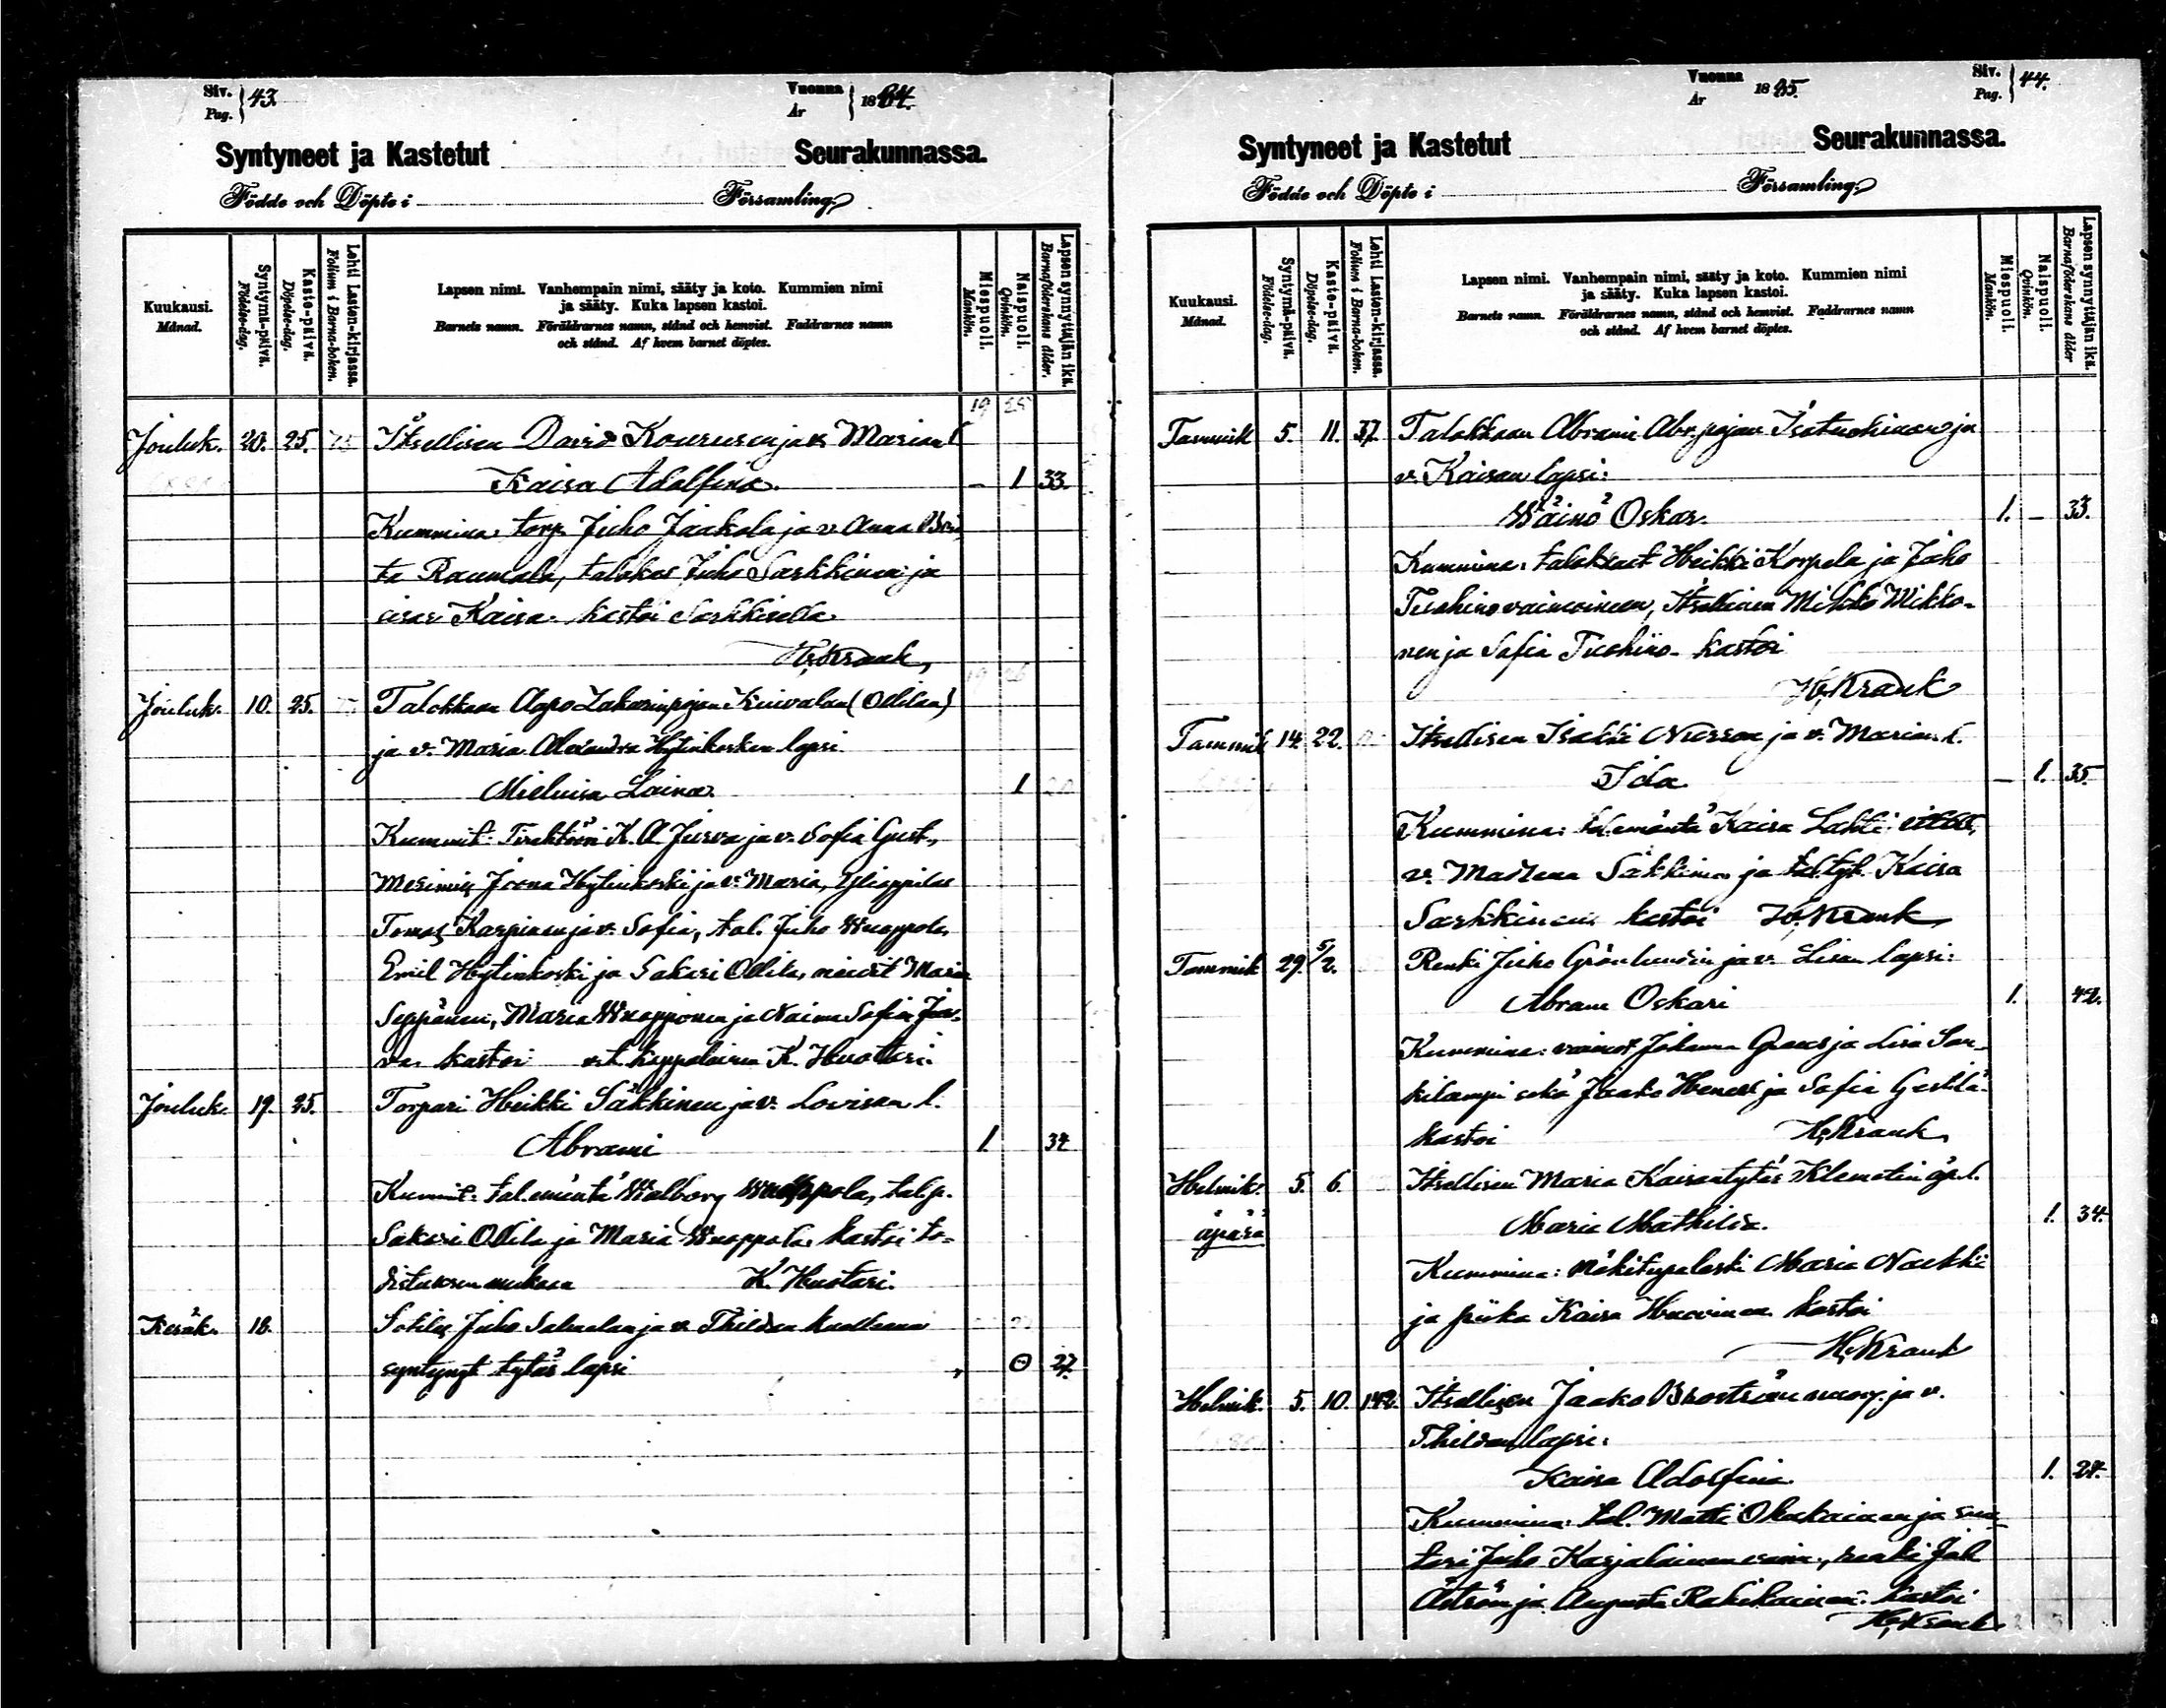 Siv. Pag. } 43. Vuonna År } 1884.
Syntyneet ja Kastetut Seurakunnassa.
Födde och Döpte i Församling.
Kuukausi. Månad.
Syntymä-päivä. Födelse-dag.
Kaste-päivä. Döpelse-dag.
Lehti Lasten-kirjassa. Folium i Barna-boken.
Lapsen nimi. Vanhempain nimi, sääty ja koto. Kummien nimi
ja sääty. Kuka lapsen kastoi.
Barnets namn. Föräldrarnes namn, stånd och hemvist. Faddrarnes namn
och stånd. Af hvem barnet döptes.
Miespuoli. Mankön.
Naispuoli. Qvinkön.
Lapsen synnyttäjän ikä. Barnaföderskans ålder.
Jouluk. 20. 25. Itsellisen David Kourusen ja v. Marian l.
Kaisa Adolfina. – 1 33.
Kummina: torp. Juho Jaakola ja v. Anna Bri
ta Raumala, talokas Juho Sarkkinen ja
sisar Kaisa. kastoi Sarkkisella
H. Krank,
Jouluk. 10. 25. Talokkaan Aapo Zakarinpojan Kuivalan (Ollilan)
ja v. Maria Alexandra Hytinkosken lapsi
Mieluisa Laina. 1
Kummit: Tirehtööri K. A. Jurva ja v. Sofia Gust.,
Merimies Joona Hytinkoski ja v. Maria, Ylioppilas
Tomas Karpinen ja v. Sofia, tal. Juho Wuoppola,
Emil Hytinkoski ja Sakari Ollila, neidit Maria
Seppänen, Maria Wuopponen ja Naima Sofia Jur-
va kastoi v.t. kappalainen K. Huotari.
Jouluk. 19. 25. Torpari Heikki Säkkinen ja v. Lovisan l.
Abrami 1. 34
Kummit: tal.emäntä Walborg Wuoppola, tal.p.
Sakari Ollila ja Maria Wuoppola. kastoi to-
distuksen mukaan K. Huotari.
Kesäk. 18. Sotilas Juho Salmelan ja v. Thildan kuolleena
syntynyt tytär lapsi 0 27.
Vuonna År 1885. Siv. Pag. } 44.
Syntyneet ja Kastetut Seurakunnassa.
Födde och Döpte i Församling.
Kuukausi. Månad.
Syntymä-päivä. Födelse-dag.
Kaste-päivä. Döpelse-dag.
Lehti Lasten-kirjassa. Folium i Barna-boken.
Lapsen nimi. Vanhempain nimi, sääty ja koto. Kummien nimi
ja sääty. Kuka lapsen kastoi.
Barnets namn. Föräldrarnes namn, stånd och hemvist. Faddrarnes namn
och stånd. Af hvem barnet döptes.
Miespuoli. Mankön.
Naispuoli. Qvinkön.
Lapsen synnyttäjän ikä. Barnaföderskans ålder
Tammik 5. 11. 37. Talokkaan Abrami Abr.pojan Isotuohinon ja
v. Kaisan lapsi:
Wäinö Oskar. 1. – 33.
Kummina: talokkaat Heikki Korpela ja Juho
Tuohino vaimoineen, Itsellinen Mikko Mikko-
nen ja Sofia Tuohino. kastoi
H. Krank
Tammik 14. 22. Itsellisen Isakki Nurson ja v. Marian l.
Ida – 1. 35.
Kummina: tal.emäntä Kaisa Lahti
v. Madlena Säkkinen ja tal.tyt. Kaisa
Sarkkinen. kastoi H. Krank
Tammik 29. 5/2. Renki Juho Grönlundin ja v. Lisan lapsi:
Abram Oskari 1. 42.
Kummina: vaimot Johanna ja Lisa Sar-
kilampi sekä Jaako ja Sofia
kastoi H. Krank
Helmik. 5. 6. Itsellisen Maria Kaisantytär Klemetin äp. l.
äpärä Maria Mathilda. 1. 34.
Kummina: Mökitupalaski Maria Naekki
ja piika Kaisa Huovinen kastoi
H. Krank
Helmik. 5. 10. 142 Itsellisen Jaako Broström nuor. ja v.
Thildan lapsi:
Kaisa Adolfina 1. 24.
Kummina: tal. Matti Okakainen ja suu-
tari Juho Karjalainen vaim., renki Joh
Åström ja Augusta kastoi
H. Krank